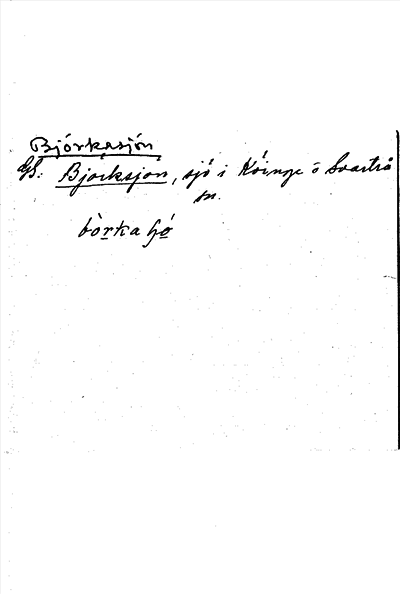 Björkasjön
GS: Björksjön, sjö i Köinge o Svartrå
sn.
bòrka ʃó